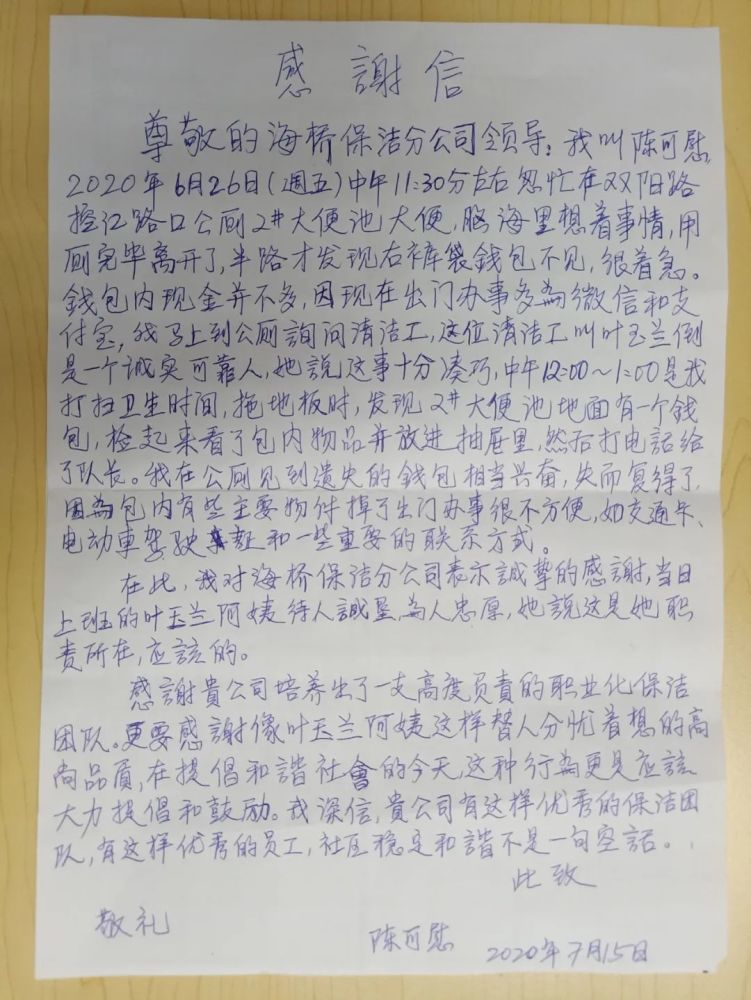 感謝信
尊敬的海桥保洁分公司领导:我叫陈可慰,
2020年6月26日(週五)中午11:30分左右忽忙在双阳路
控江路口公厕2#大便池大便,脑海里想着事情,用
厕完毕离开了,半路才发现右裤袋錢包不见,很着急。
錢包内现金并不多,因现在出门办事多為微信和支
付宝,我马上到公厕詢问清洁工,这位清洁工叫叶玉兰倒
是一个诚实可靠人,她説这事十分凑巧,中午12:00~1:00是我
打扫卫生时间,拖地板时,发现2#大便池地面有一个钱
包,检起来看了包内物品并放进抽屉里,然后打电話给
了队长。我在公厕见到遗失的錢包相当兴奋,失而复得了,
因為包内有些主要物件掉了出门办事很不方便,如交通卡、
电动車驾驶証和一些重要的联系方式。
在此,我对海桥保洁分公司表示誠挚的感謝,当日
上班的叶玉兰阿姨待人誠墾,為人忠愿,她説这是她职
责所在,应該的。
感謝貴公司培养出了一支高度负責的职业化保洁
团队。更要感謝像叶玉兰阿姨这样替人分忧着想的高
尚品质,在提倡和諧社會的今天,这种行為更是应該
大力提倡和鼓励。我深信,貴公司有这样优秀的保洁团
队,有这样优秀的员工,社区稳定和諧不是一句空話。
此致
敬礼
陈可慰 2020年7月15日